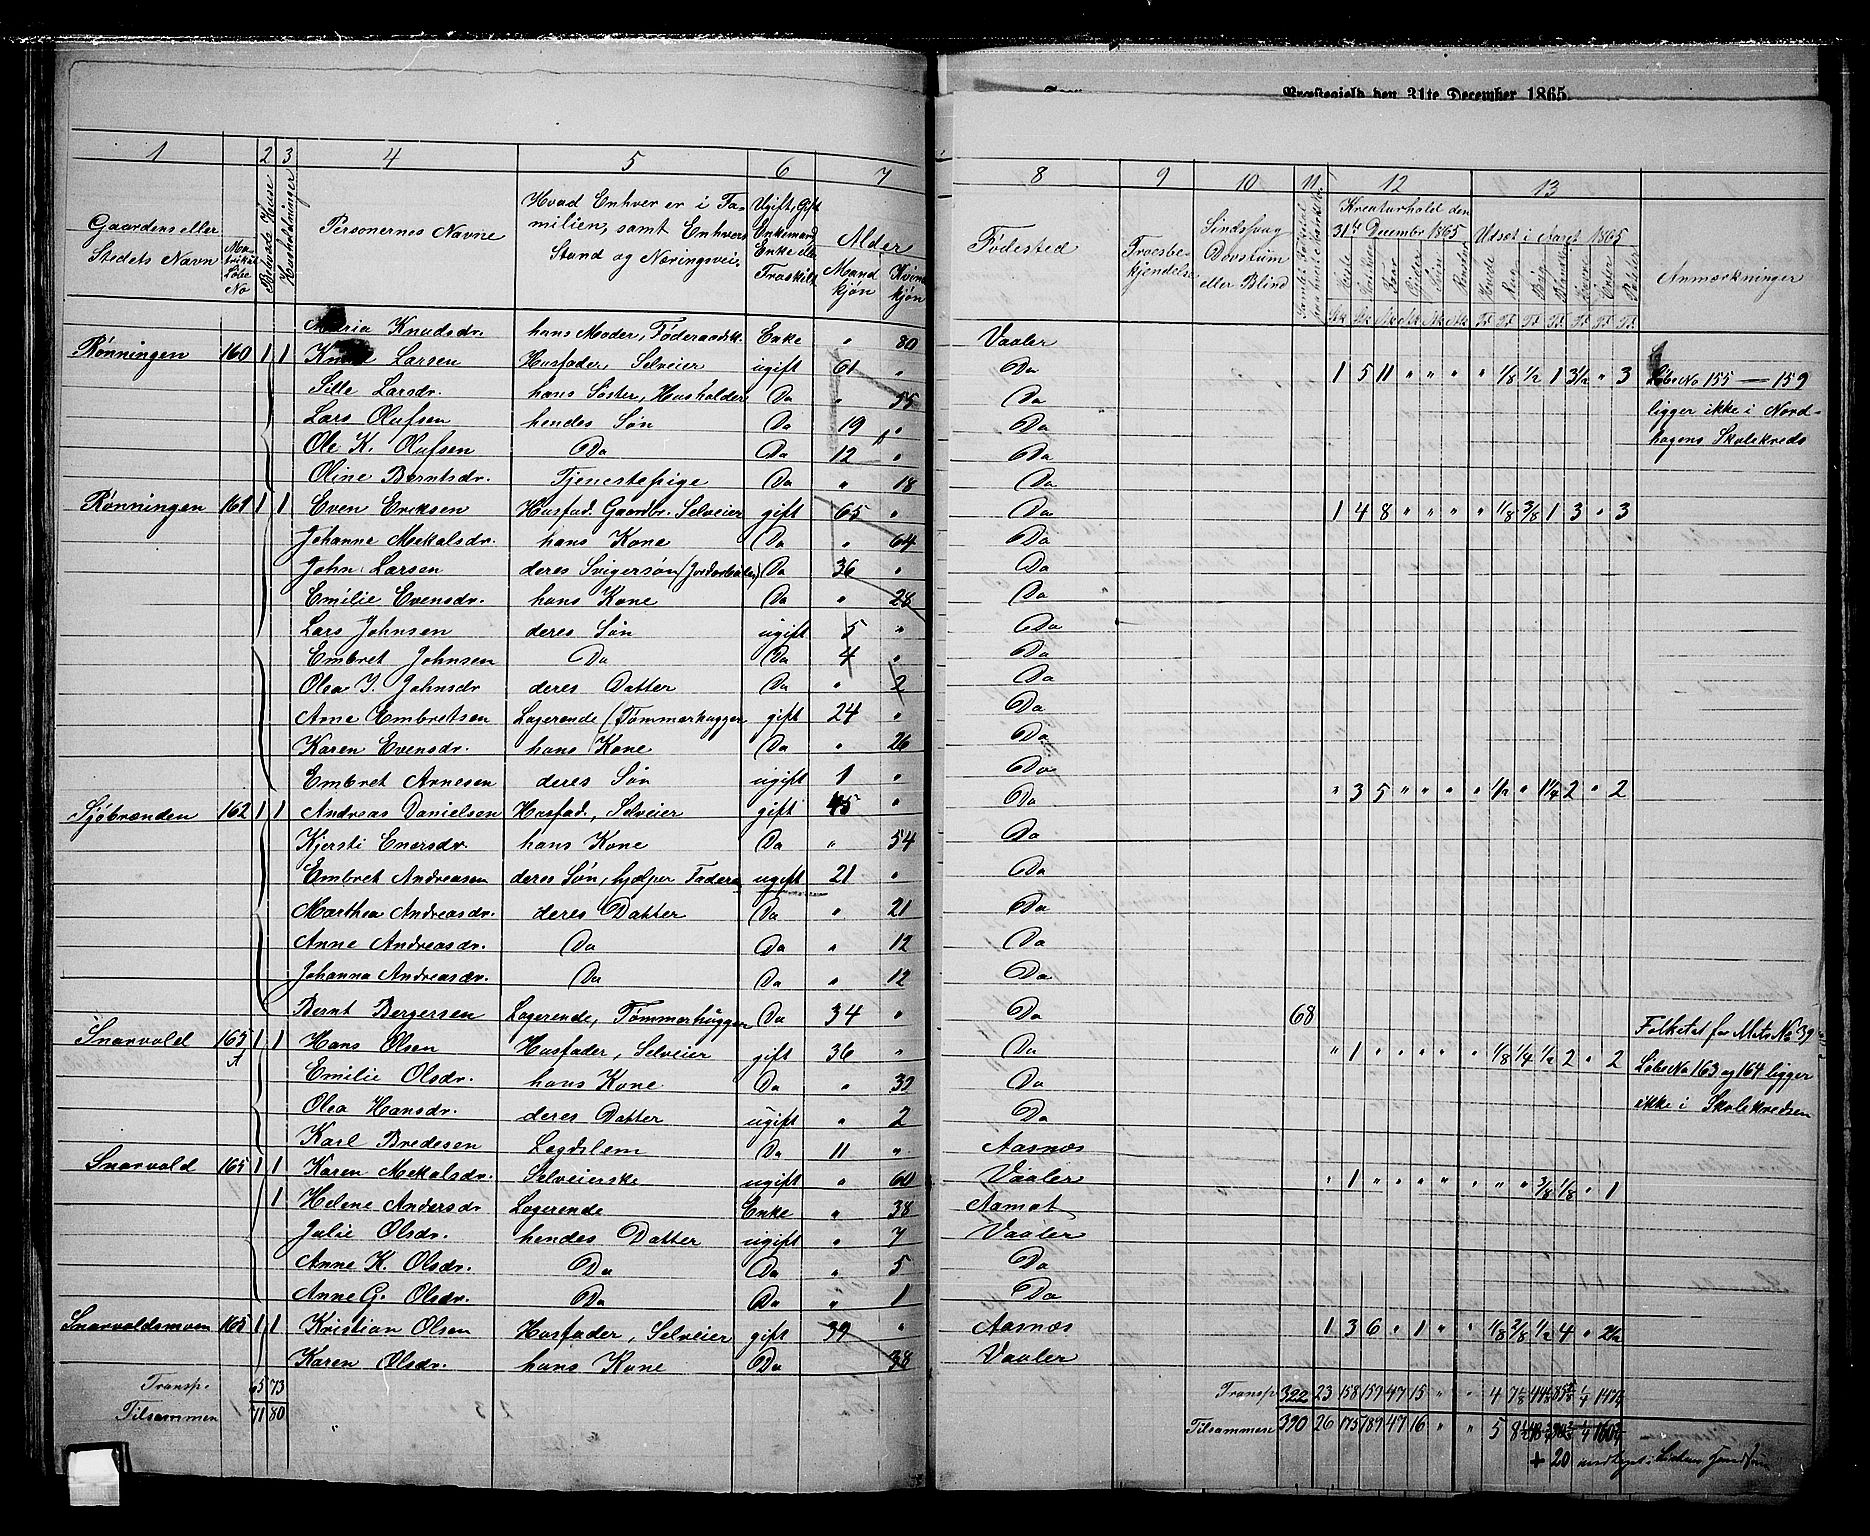 Præstegjeld den 31te December 1865.
1 2 3 4 5 6 7
Gaardens eller Stedets Navn | Matrikul Løbe No | Bebode Huse | Husholdninger | Personernes Navne | Hvad Enhver er i Familien, samt Enhvers Stand og Næringsvei. | Ugift, Gift Enkemand Enke eller Fraskilt | Alder Mandkjøn | Kvindekjøn
Maria Knudsdr. hans Moder, Føderaadsk. Enke " 80
Rønningen 160 1 1 Knud Larsen Husfader, Selveier ugift 61 "
Sille Larsdr. hans Søster, Husholder Do " 55
Lars Olufsen hendes Søn Do 19 "
Ole K. Olufsen Do Do 12 "
Oline Berntsdr. Tjenestepige Do " 18
Rønningen 161 1 1 Even Ericksen Husfad. Gaardbr. Selveier gift 65 "
Johanne Mekalsdr. hans Kone Do " 64
John Larsen deres Svigersøn (Jordarbeider) Do 36 "
Emilie Evensdr. hans Kone Do " 28
Lars Johnsen deres Søn ugift 5 "
Embret Johnsen Do Do 4 "
Olea J. Johnsdr deres Datter Do " 2
Arne Embretsen Logerende (Tømmerhugger gift 24 "
Karen Evensdr. hans Kone Do " 26
Embret Arnesen deres Søn ugift 1 "
Sjøbrænden 162 1 1 Andreas Danielsen Husfad., Selveier gift 45 "
Kjersti Enersdr. hans Kone Do " 54
Embret Andreasen deres Søn, hjælper Fadern ugift 21 "
Marthea Andreasdr. deres Datter Do " 21
Anne Andreasdr. Do Do " 12
Johanna Andreasdr. Do Do " 12
Bernt Bergersen Logerende, Tømmerhugger Do 34 "
Snarvold 165 A 1 1 Hans Olsen Husfader, Selveier gift 36 "
Emilie Olsdr. hans Kone Do "
Olea Hansdr. deres Datter ugift " 2
Karl Bredesen Legdslem Do 11 "
Snarvold 165 1 1 Karen Mekalsdr. Selveierske ugift " 60
1 Helene Andersdr Logerende Enke " 38
Julie Olsdr. hendes Datter ugift " 7
Anne K. Olsdr. Do Do " 5
Anne G. Olsdr. Do Do " 1
Snarvoldsmoen 165 1 1 Kristian Olsen Husfader, Selveier gift 39 "
Karen Olsdr. hans Kone Do " 38
Transp. 65 73
Tilsammen 71 80
8 9 10 11 12 13
Fødested | Troesbekjendelse | Sindssvag Døvstum eller Blind | Kreaturhold den 31te December 1865 | Udsæt i Aaret 1865 | Anmærkninger
Vaaler
Do 1 5 11 " " " " 1/8 1/2 1 3 1/2 " 3 Løbe No 155 — 159
Do ligger ikke i Nord-
Do hagens Skolekreds
Do
Do
Do 1 4 8 " " " " 1/8 3/8 1 3 " 3
Do
Do
Do
Do
Do
Do
Do
Do
Do
Do " 3 5 " " " " 1/2 " 1 1/4 2 " 2
Do
Do
Do
Do
Do
Do 68 Folketal for Mats No 39
Do " 1 " " " " " 1/8 1/4 1/2 2 " 2 Løbe No 163 og 164 ligger
Do ikke i Skolekredsen
Do
Aasnæs
Vaaler " 1 " " " " " " " 3/8 1/8 " 1
Aamot
Vaaler
Do
Do
Aasnæs 1 3 6 " 1 " " 1/8 2/8 1/2 4 " 2 1/2
Vaaler
Transp. 322 23 158 159 47 15 " " 4
Tilsammen 390 26 175 189 47 16 " " 5
+ 20